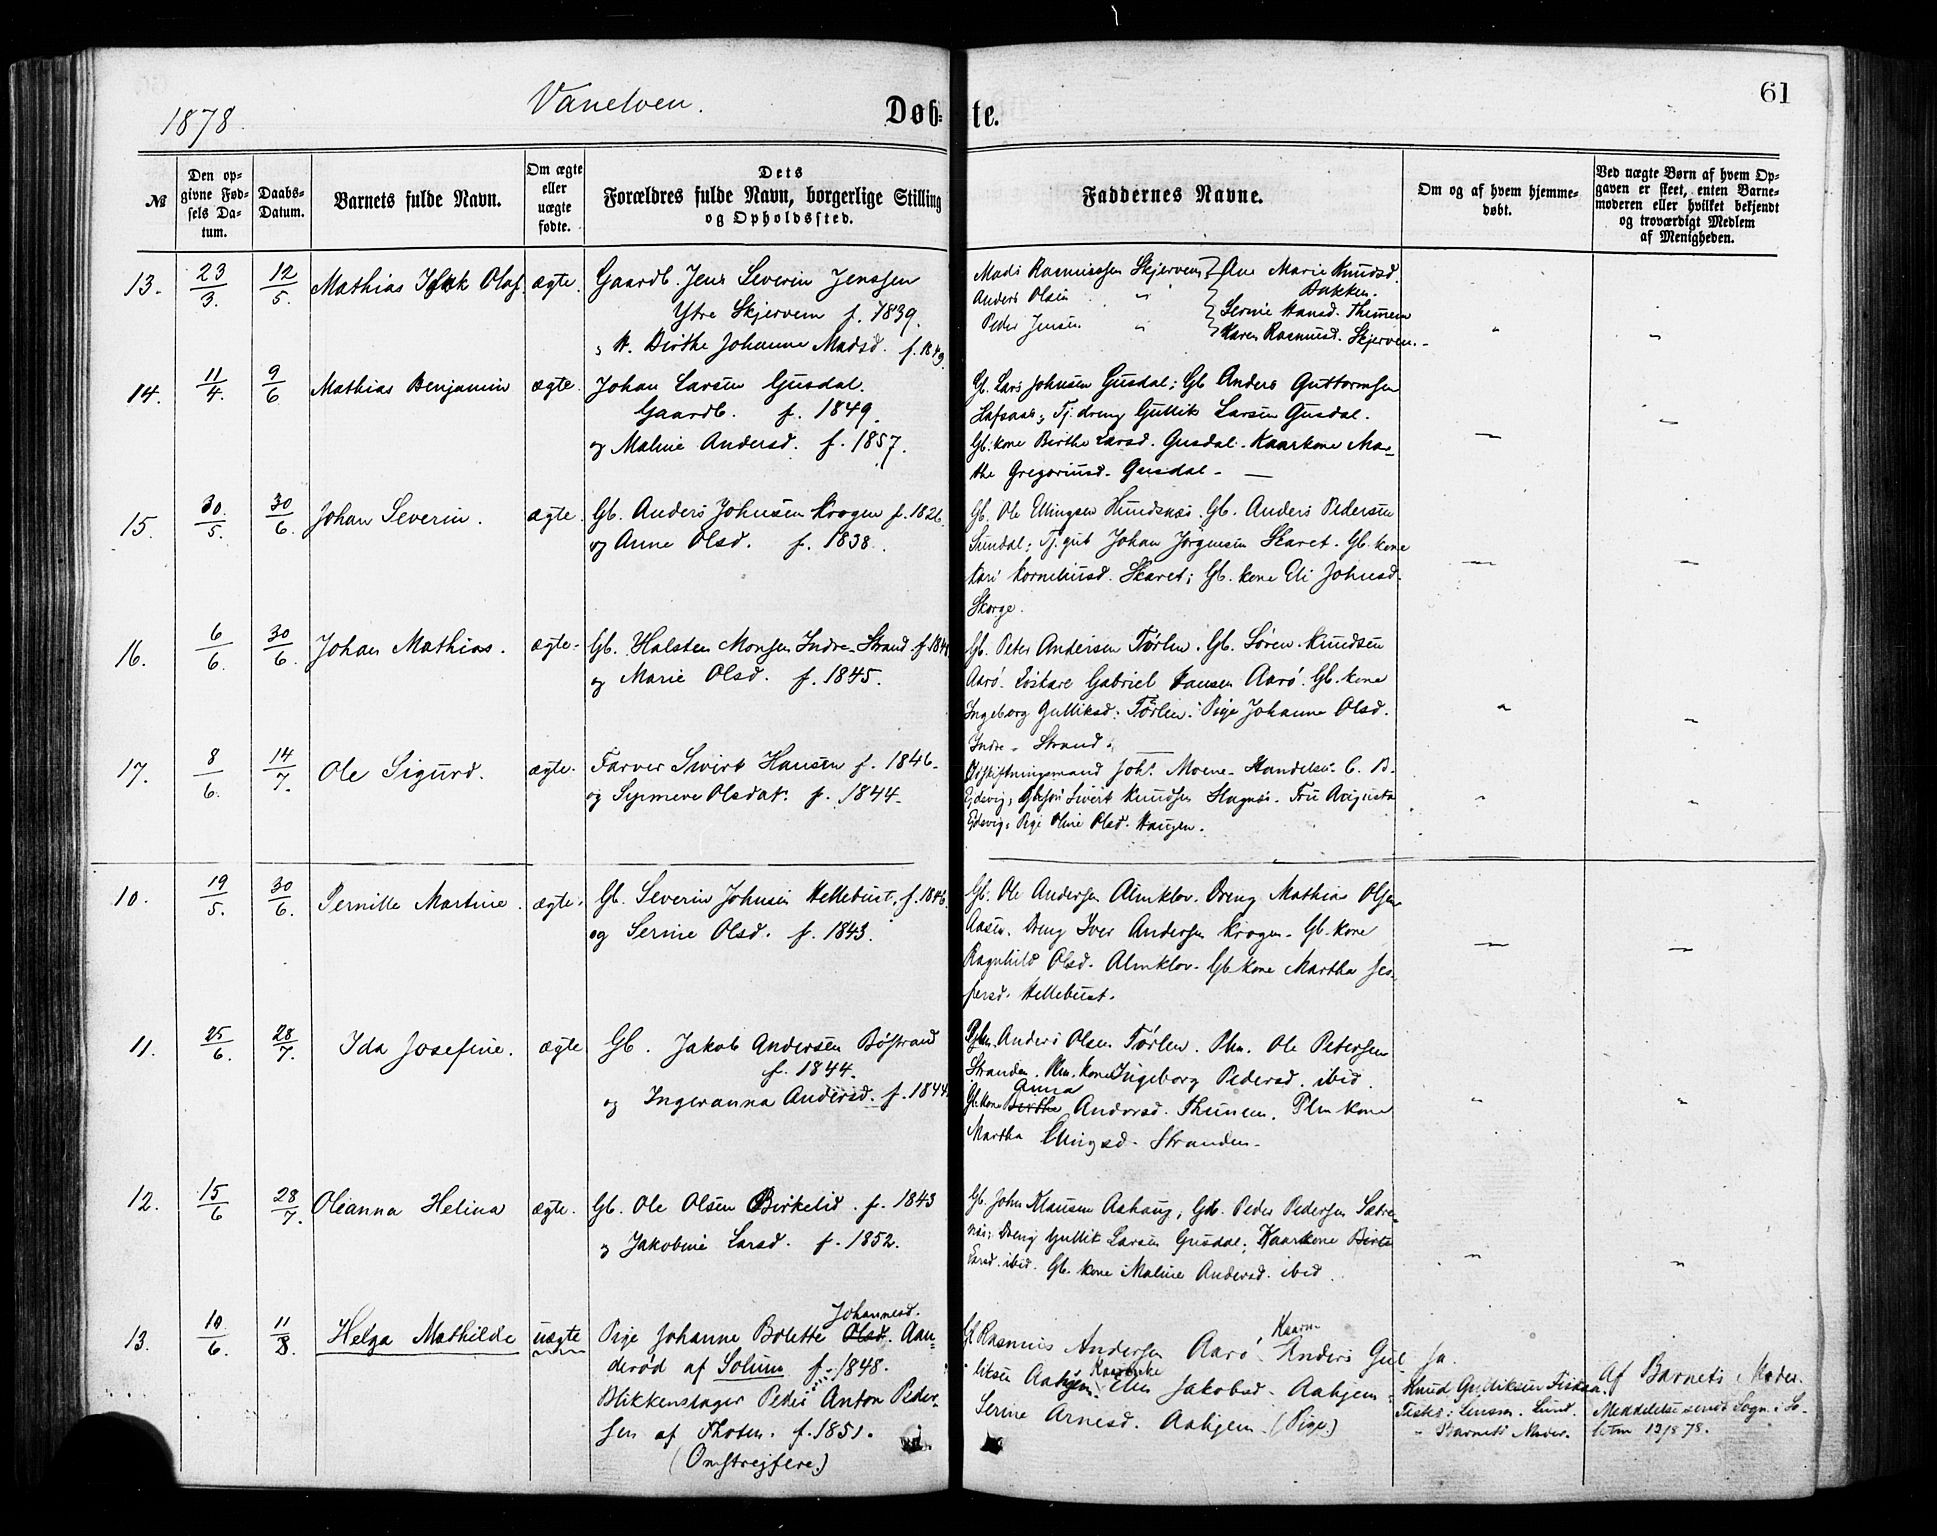 61
1878.
Vanelven.
Døb-te.
№
Den op-
givne Fød-
sels Da-
tum.
Daabs-
Datum.
Barnets fulde Navn.
Om ægte
eller
uægte
fødte.
Dets
Forældres fulde Navn, borgerlige Stilling
og Opholdssted.
Faddernes Navne.
Om og af hvem hjemme-
døbt.
Ved uægte Børn af hvem Op-
gaven er skeet, enten Barne-
moderen eller hvilket bekjendt
og troværdigt Medlem
af Menigheden.
13. 23/3. 12/5 Mathias Olaf. ægte. Gaardb. Jens Severin Jenssen
Ytre Skjervem f. 1839.
K. Birthe Johanne Madsd. f. 1849.
Mads Rasmussen Skjerven } Ane Marie Knudsd.
Bakken.
Anders Olsen " } Serine Hansd. Thunem
Peder Jensen " } Karen Rasmusd. Skjerven. " "
14. 11/4. 9/6 Mathias Benjamin ægte. Johan Larsen Gusdal.
Gaardb. f. 1849.
og Maline Andersd. f. 1857.
Gb. Lars Johnsen Gusdal; Gb. Anders Guttormsen
Hafsaas; Tj. dreng Gullik Larsen Gusdal.
Gb. kone Birthe Larsd. Gusdal. Kaarkone Mar-
the Gregoriusd. Gusdal - —
15. 30/5. 30/6. Johan Severin. ægte. Gb. Anders Johnsen Krogen f. 1826.
og Anne Olsd. f. 1838.
Gb. Ole Ellingsen Hundsnæs. Gb. Anders Pedersen
Sundal; Tj. gut Johan Jørgensen Skaret. Gb. kone
Kari Korneliusd. Skaret; Gb. kone Eli Johnsd.
Skorge.
16. 6/6. 30/6. Johan Mathias. ægte. Gb. Halsten Monsen Indre-Strand f. 1844
og Marie Olsd. f. 1845.
Gb. Peter Andersen Tørlen. Gb. Søren Knudsen
Aarø. Løskare Gabriel Hansen Aarø. Gb. kone
Ingeborg Gulliksd. Tørlen. Pige Johanne Olsd.
Indre-Strand.
17. 8/6. 14/7. Ole Sigurd. ægte. Farver Sivert Hansen f. 1846.
og Synneve Olsdat. f. 1844.
Udskiftningsmand Joh. Moene. Handelsm. C. B.
Ejdsvig; Sivert Knudsen Hagnæs. Fru Augusta
Ejdsvig; Pige Oline Olsd. Haugen.
10. 19/5. 30/6. Pernille Martine. ægte. Gb. Severin Johnsen Hellebust. f. 1846.
og Serine Olsd. f. 1843.
Gb. Ole Andersen Almklov. Dreng Mathias Olsen
Aasen. Dreng Iver Andersen Krogen. Gb. kone
Ragnhild Olsd. Almklov. Gb. kone Martha Jes-
persd. Hellebust.
11. 25/6. 28/7. Ida Josefine. ægte Gb. Jakob Andersen Bøstrand
f. 1844.
og Ingeranna Andersd. f. 1844.
Anders Olsen Tørlen. Plm. Ole Petersen
Stranden. Plm. kone Ingeborg Pedersd. ibid.
Gb. kone Birthe Anna Andersd. Thunem. Plm kone
Martha Ellingsd. Stranden.
12. 15/6 28/7. Oleanna Helina ægte. Gb. Ole Olsen Birkelid. f. 1843
og Jakobine Larsd. f. 1852.
Gb. John Klausen Aahaug; Gb. Peder Pedersen Sætre-
næs; Dreng Gullik Larsen Gusdal; Kaarkone Birte
Larsd. ibid. Gb. kone Maline Andersd. ibid.
13. 10/6. 11/8. Helga Mathilde uægte Pige Johanne Bolette Olsd. Johannesd. Aan-
derød af Solum f. 1848.
Blikkenslager Peder Anton Peder-
sen af Thoten. f. 1851.
(Omstrejfere.)
Gb Rasmus Andersen Aarø. Kaarm Anders Gul-
liksen Aahjem. Kaarenke Ellen Jakobsd. Aahjem
Serine Arnesd. Aahjem (Pige)
Ja.
Knud Gulliksen Fiskaa.
Barnets Moder.
Af Barnets Moder.
Meddelelse sendt Sogn. i So-
lum 13/8 78.